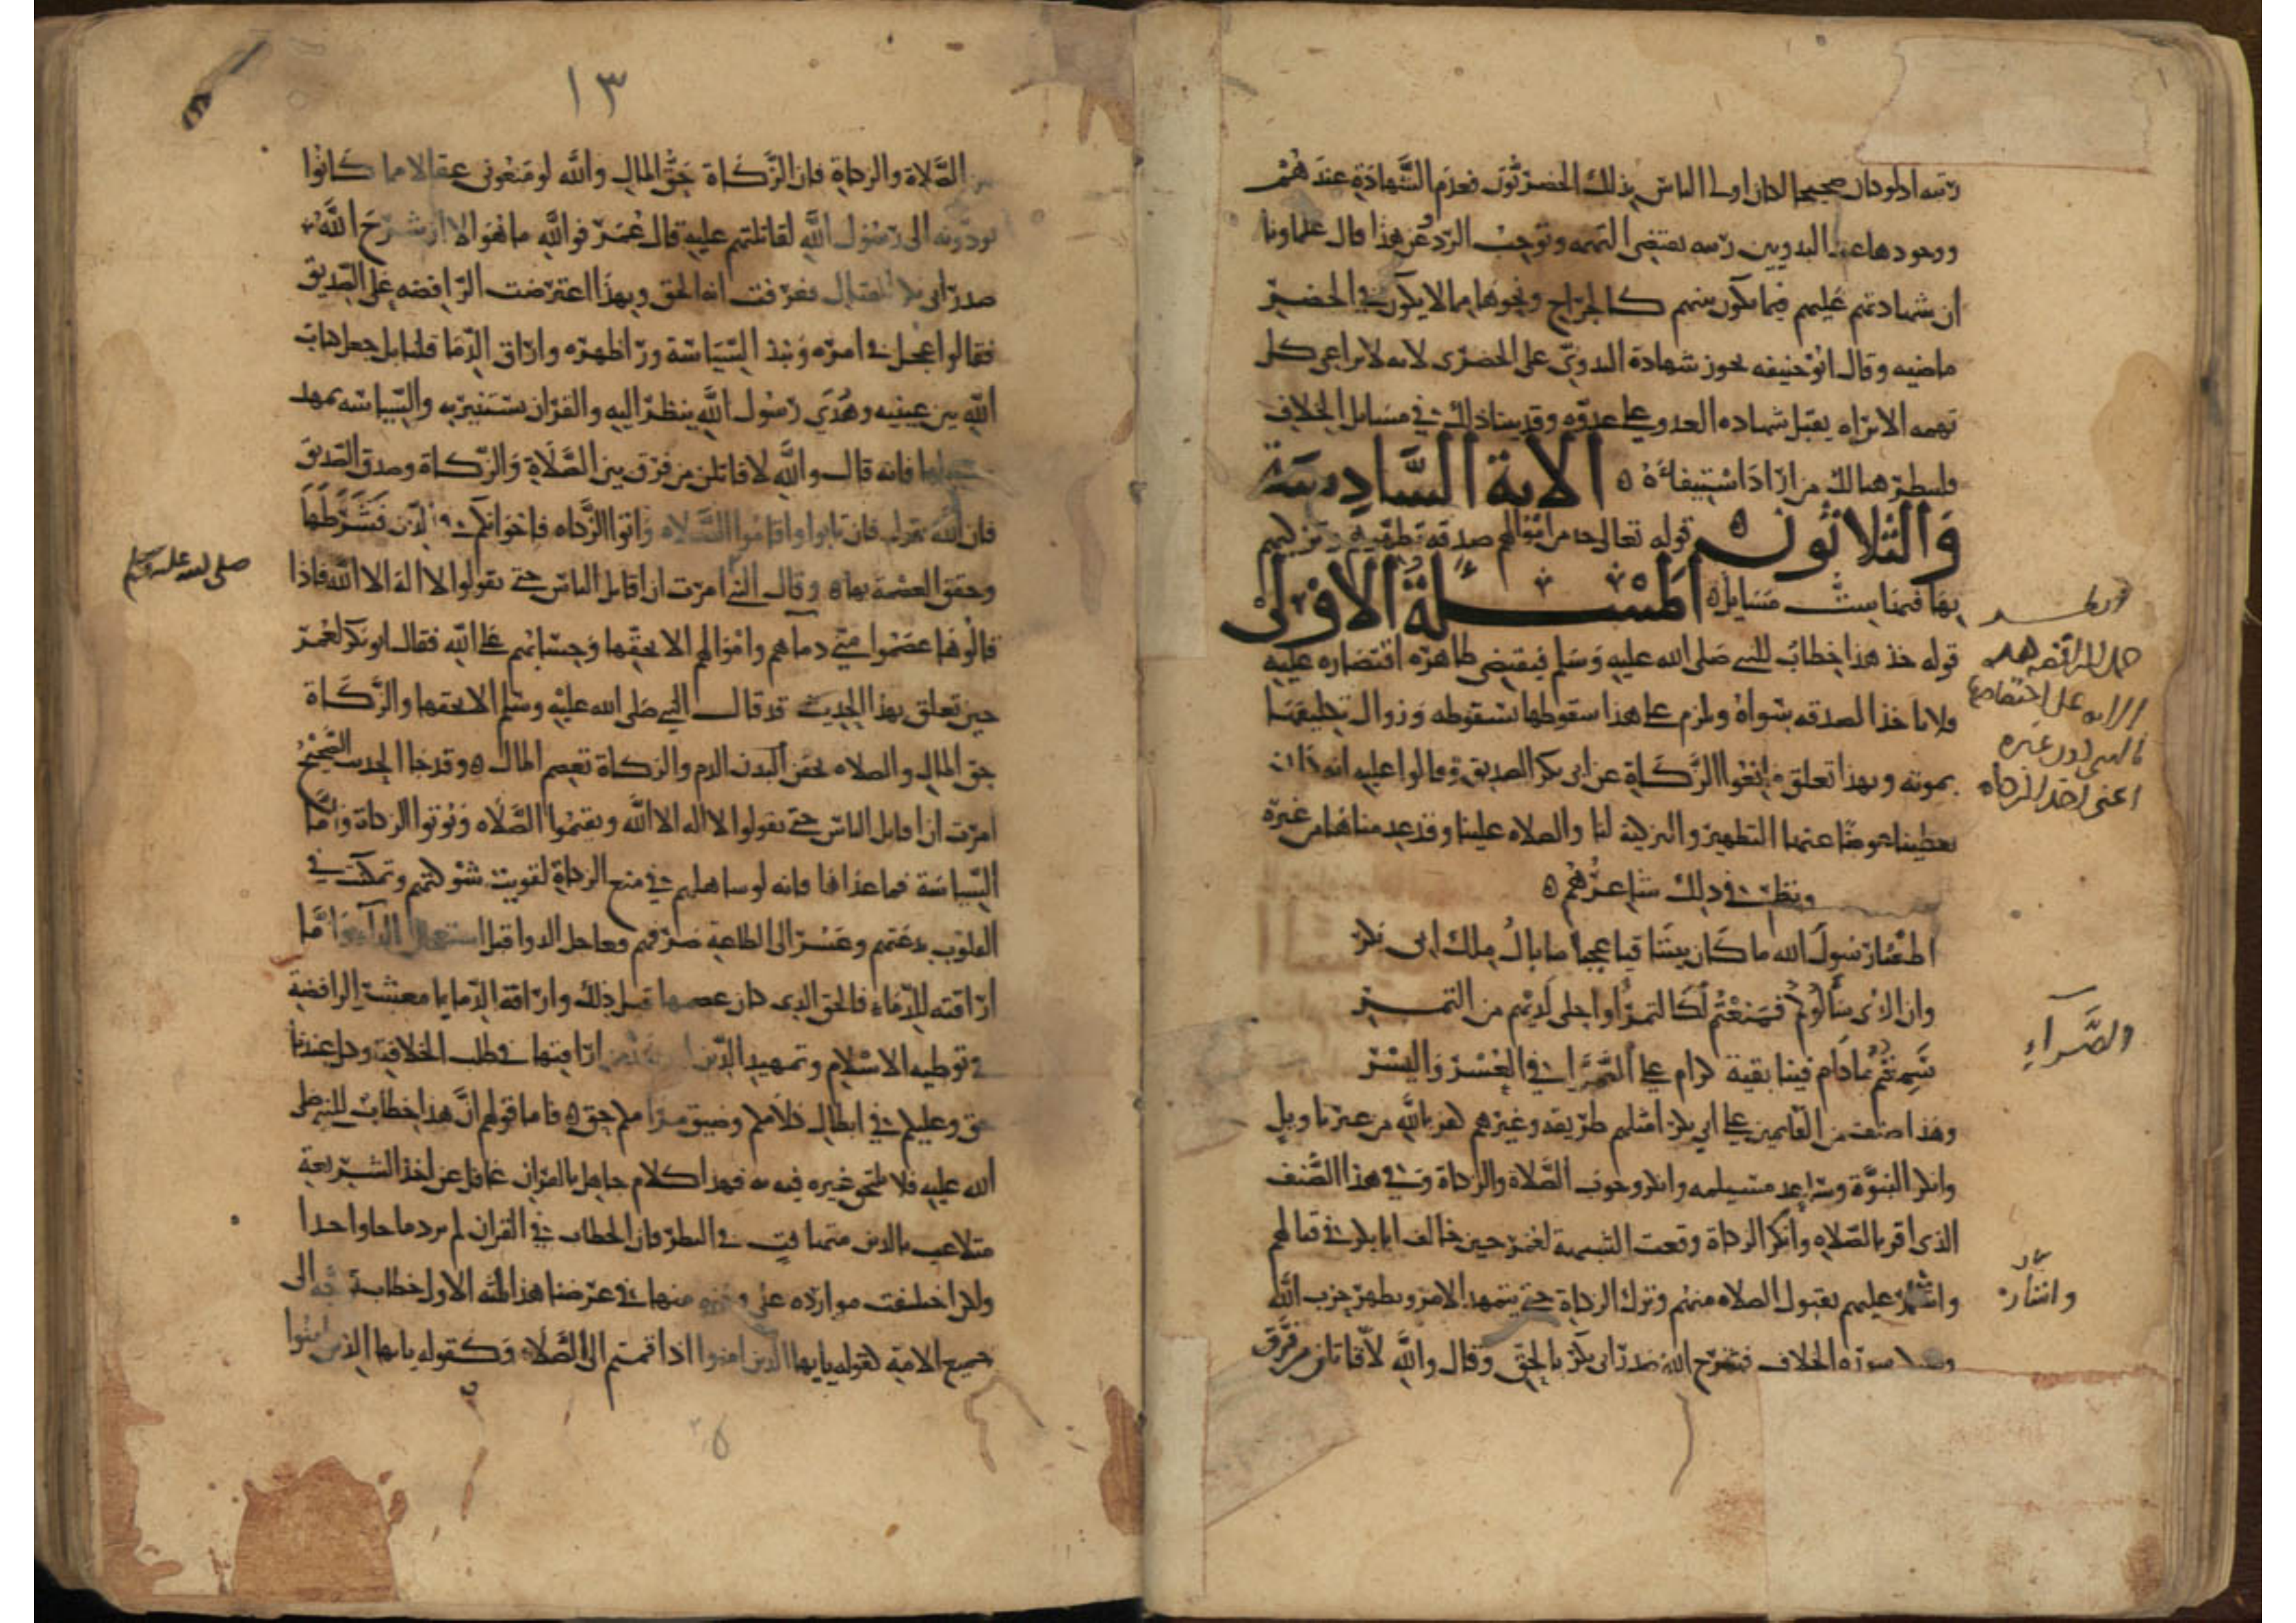 ريبة اذ لو كان صحيحا لكان اولى الناس بذلك الحضريون فعدم الشهادة عندهم
ووجودها عند البدويين ريبة تقتضي التهمة وتوجب الرد وعن هذا قال علماونا
ان شهادتهم عليهم فيما يكون بينهم كالجراح ونحوها مما لا يكون في الحضر
ماضيه وقال ابو حنيفه تجوز شهادة البدوي على الحضري لانه لا يراعي كل
تهمه الا تراه يقبل شهاده العدو على عدوه وقد بينا ذلك في مسايل الخلاف
فلينظر هنالك من اراد استيفاءه ه الاية السادسة
والثلاثون ه قوله تعالى خذ من اموالهم صدقه تطهرهم وتزكيهم
بها فيها ست مسايل ه المسلة الاولى
قوله خذ هذا خطاب للنبي صلى الله عليه وسلم فيقتضي ظاهره اقتصاره عليه
فلا ياخذ الصدقه سواه ويلزم على هذا سقوطها بسقوطه وزوال تكليفها
بموته وبهذا تعلق مانعوا الزكاة عن ابي بكر الصديق وقالوا عليه انه كان
يعطينا عوضا عنها التطهير والتزكية لنا والصلاه علينا وقد عدمناها من غيره
ونظم في ذلك شاعرهم ه
اطعنا رسول الله ما كان بيننا فيا عجبا ما بال ملك ابي بكر
وان الذي سالوكم فمنعتم لكالتمر او احلى لديهم من التمر
سنمنعهم ما دام فينا بقية كرام على الضراء في العسر واليسر
وهذا صنف من القايمين على ابي بكر امثلهم طريقه وغيرهم كفر بالله من غير تاويل
وانكر النبوة وساعد مسيلمه وانكر وجوب الصلاة والزكاة وفي هذا الصنف
الذي اقر بالصلاه وانكر الزكاة وقعت الشبهة لعمر حين خالف ابا بكر في قتالهم
واشار عليهم بقبول الصلاه منهم وترك الزكاة حتى يتمهد الامر ويظهر حزب الله
سورة الخلاف فشرح الله صدر ابي بكر بالحق وقال والله لاقاتلن من فرق
حمل الرافضه هذه
الايه على اختصاصها
بالنبي دون غيره
اعني اخذ الزكاه
والضراء
واشار
١٣
بين الصلاة والزكاة فان الزكاة حق المال والله لو منعوني عقالا مما كانوا
يودونه الى رسول الله لقاتلتهم عليه قال عمر فوالله ما هو الا ان شرح الله
صدر ابي بكر للقتال فعرفت انه الحق وبهذا اعترضت الرافضه على الصديق
فقالوا عجل في امره ونبذ السياسة ورا ظهره واراق الدما قلنا بل جعل كتاب
الله بين عينيه وهدي رسول الله ينظر اليه والقران يستنير به والسياسه يمهد
سبلها فانه قال والله لاقاتلن من فرق بين الصلاة والزكاة وصدق الصديق
فان الله يقول فان تابوا واقاموا الصلاه واتوا الزكاه فاخوانكم في الدين فشرطها
وحقق العصمة بها ه وقال النبي امرت ان اقاتل الناس حتى يقولوا لا اله الا الله فاذا
صلى الله عليه وسلم
قالوها عصموا مني دماهم واموالهم الا بحقها وحسابهم على الله فقال ابو بكر لعمر
حين تعلق بهذا الحديث قد قال النبي صلى الله عليه وسلم الا بحقها والزكاة
حق المال والصلاه تحقن البدن الدم والزكاة تعصم المال ه وقد جا الحديث الصحيح
امرت ان اقاتل الناس حتى يقولوا لا اله الا الله ويقيموا الصلاه ويوتوا الزكاة واما
السياسة فما عداها فانه لو ساهلهم في منع الزكاة لقويت شوكتهم وتمكنت في
القلوب بدعتهم وعسر الى الطاعة صرفهم فعاجل الدوا قبل استفحال الداء واما
اراقته للدماء فالحق الذي كان عصمها قبل ذلك واراقة الدما يا معشر الرافضة
في توطيه الاسلام وتمهيد الدين اراقتها في طلب الخلافة وكل عندنا
حق وعليكم في ابطال كلامكم وضيق مرامكم حق ه فاما قولهم ان هذا خطاب للنبي صلى
الله عليه فلا يلتحق غيره فيه به فهذا كلام جاهل بالقران غافل عن اخذ الشريعة
متلاعب بالدين متهافت في النظر فان الخطاب في القران لم يرد بابا واحدا
ولكن اختلفت موارده على وجوه منها في غرضنا هذا ثلثه الاول خطاب توجه الى
جميع الامة كقوله يايها الذين امنوا اذا قمتم الى الصلاه وكقوله يايها الذين امنوا